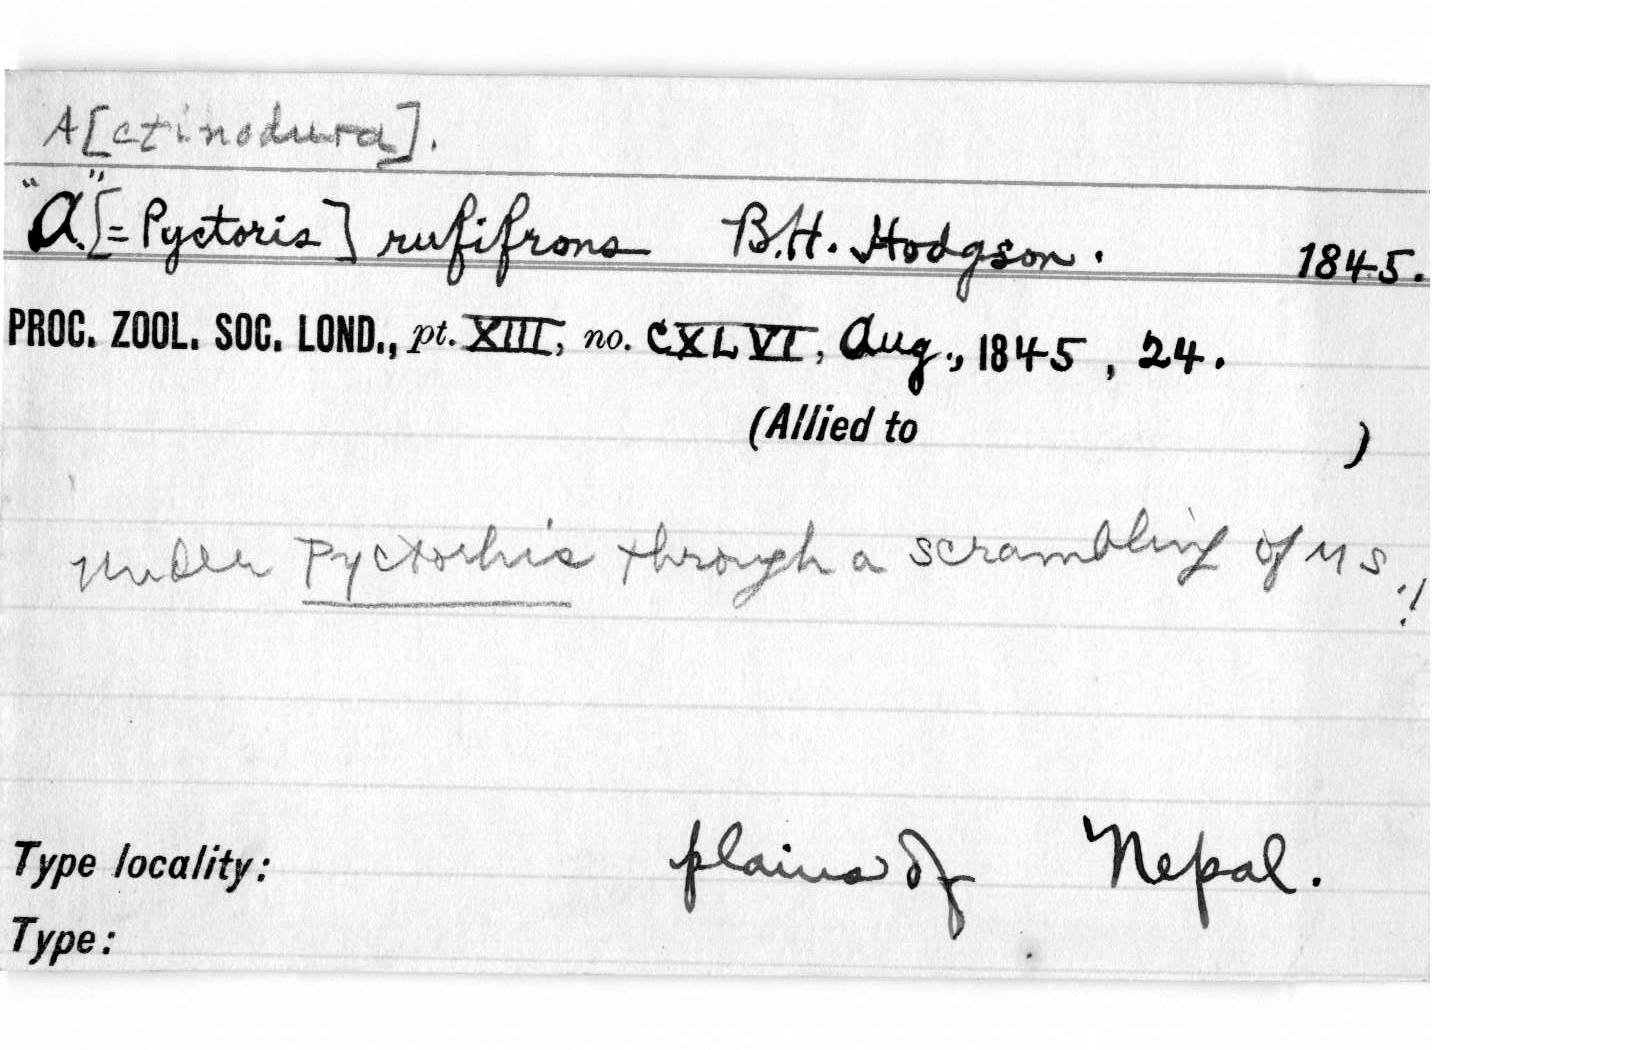 A[ctinodura].
"A."[= Pyctoris] rufifrons B.H. Hodgson. 1845.
PROC. ZOOL. SOC. LOND., pt. XIII, no. CXLVI, Aug., 1845, 24.
(Allied to )
under Pyctorhis through a scrambling of MS.!
Type locality: plains of Nepal.
Type: